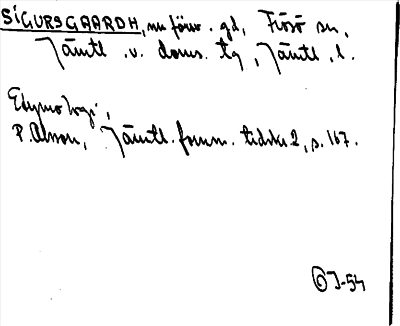 SIGURSGAARDH, nu förv. gd, Frösö sn,
Jämtl. v. doms. tg, Jämtl. l.
Etymologi,
P. Olsson, Jämtl. fornm. tidskr 2, s. 167.
OJ-54